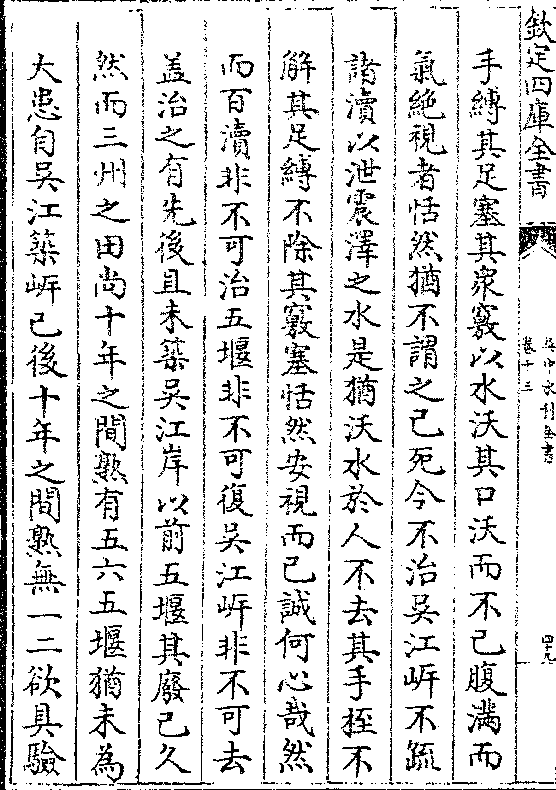 欽定四庫全書
吳中水利全書
卷十三
四十九
手縛其足塞其衆竅以水沃其口沃而不已腹滿而
氣絶視者恬然猶不謂之已死今不治吳江岍不疏
諸瀆以泄震澤之水是猶沃水於人不去其手桎不
解其足縛不除其竅塞恬然安視而已誠何心哉然
而百瀆非不可治五堰非不可復吳江岍非不可去
盖治之有先後且未築吳江岸以前五堰其廢已久
然而三州之田尚十年之間熟有五六五堰猶未為
大患自吳江築岍已後十年之間熟無一二欲具驗